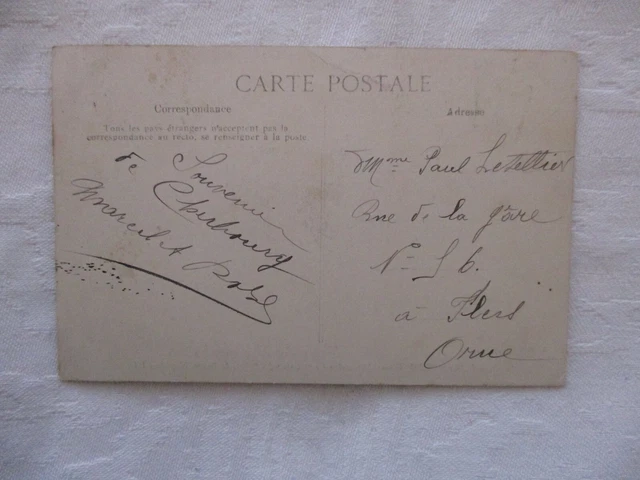 CARTE POSTALE
Correspondance
Tous les pays étrangers n'acceptent pas la
correspondance au recto, se renseigner à la poste
Souvenir
de Cherbourg
Marcel et
Adresse
Mme Paul Letellier
Rue de la gare
N= 56.
à Flers
Orne